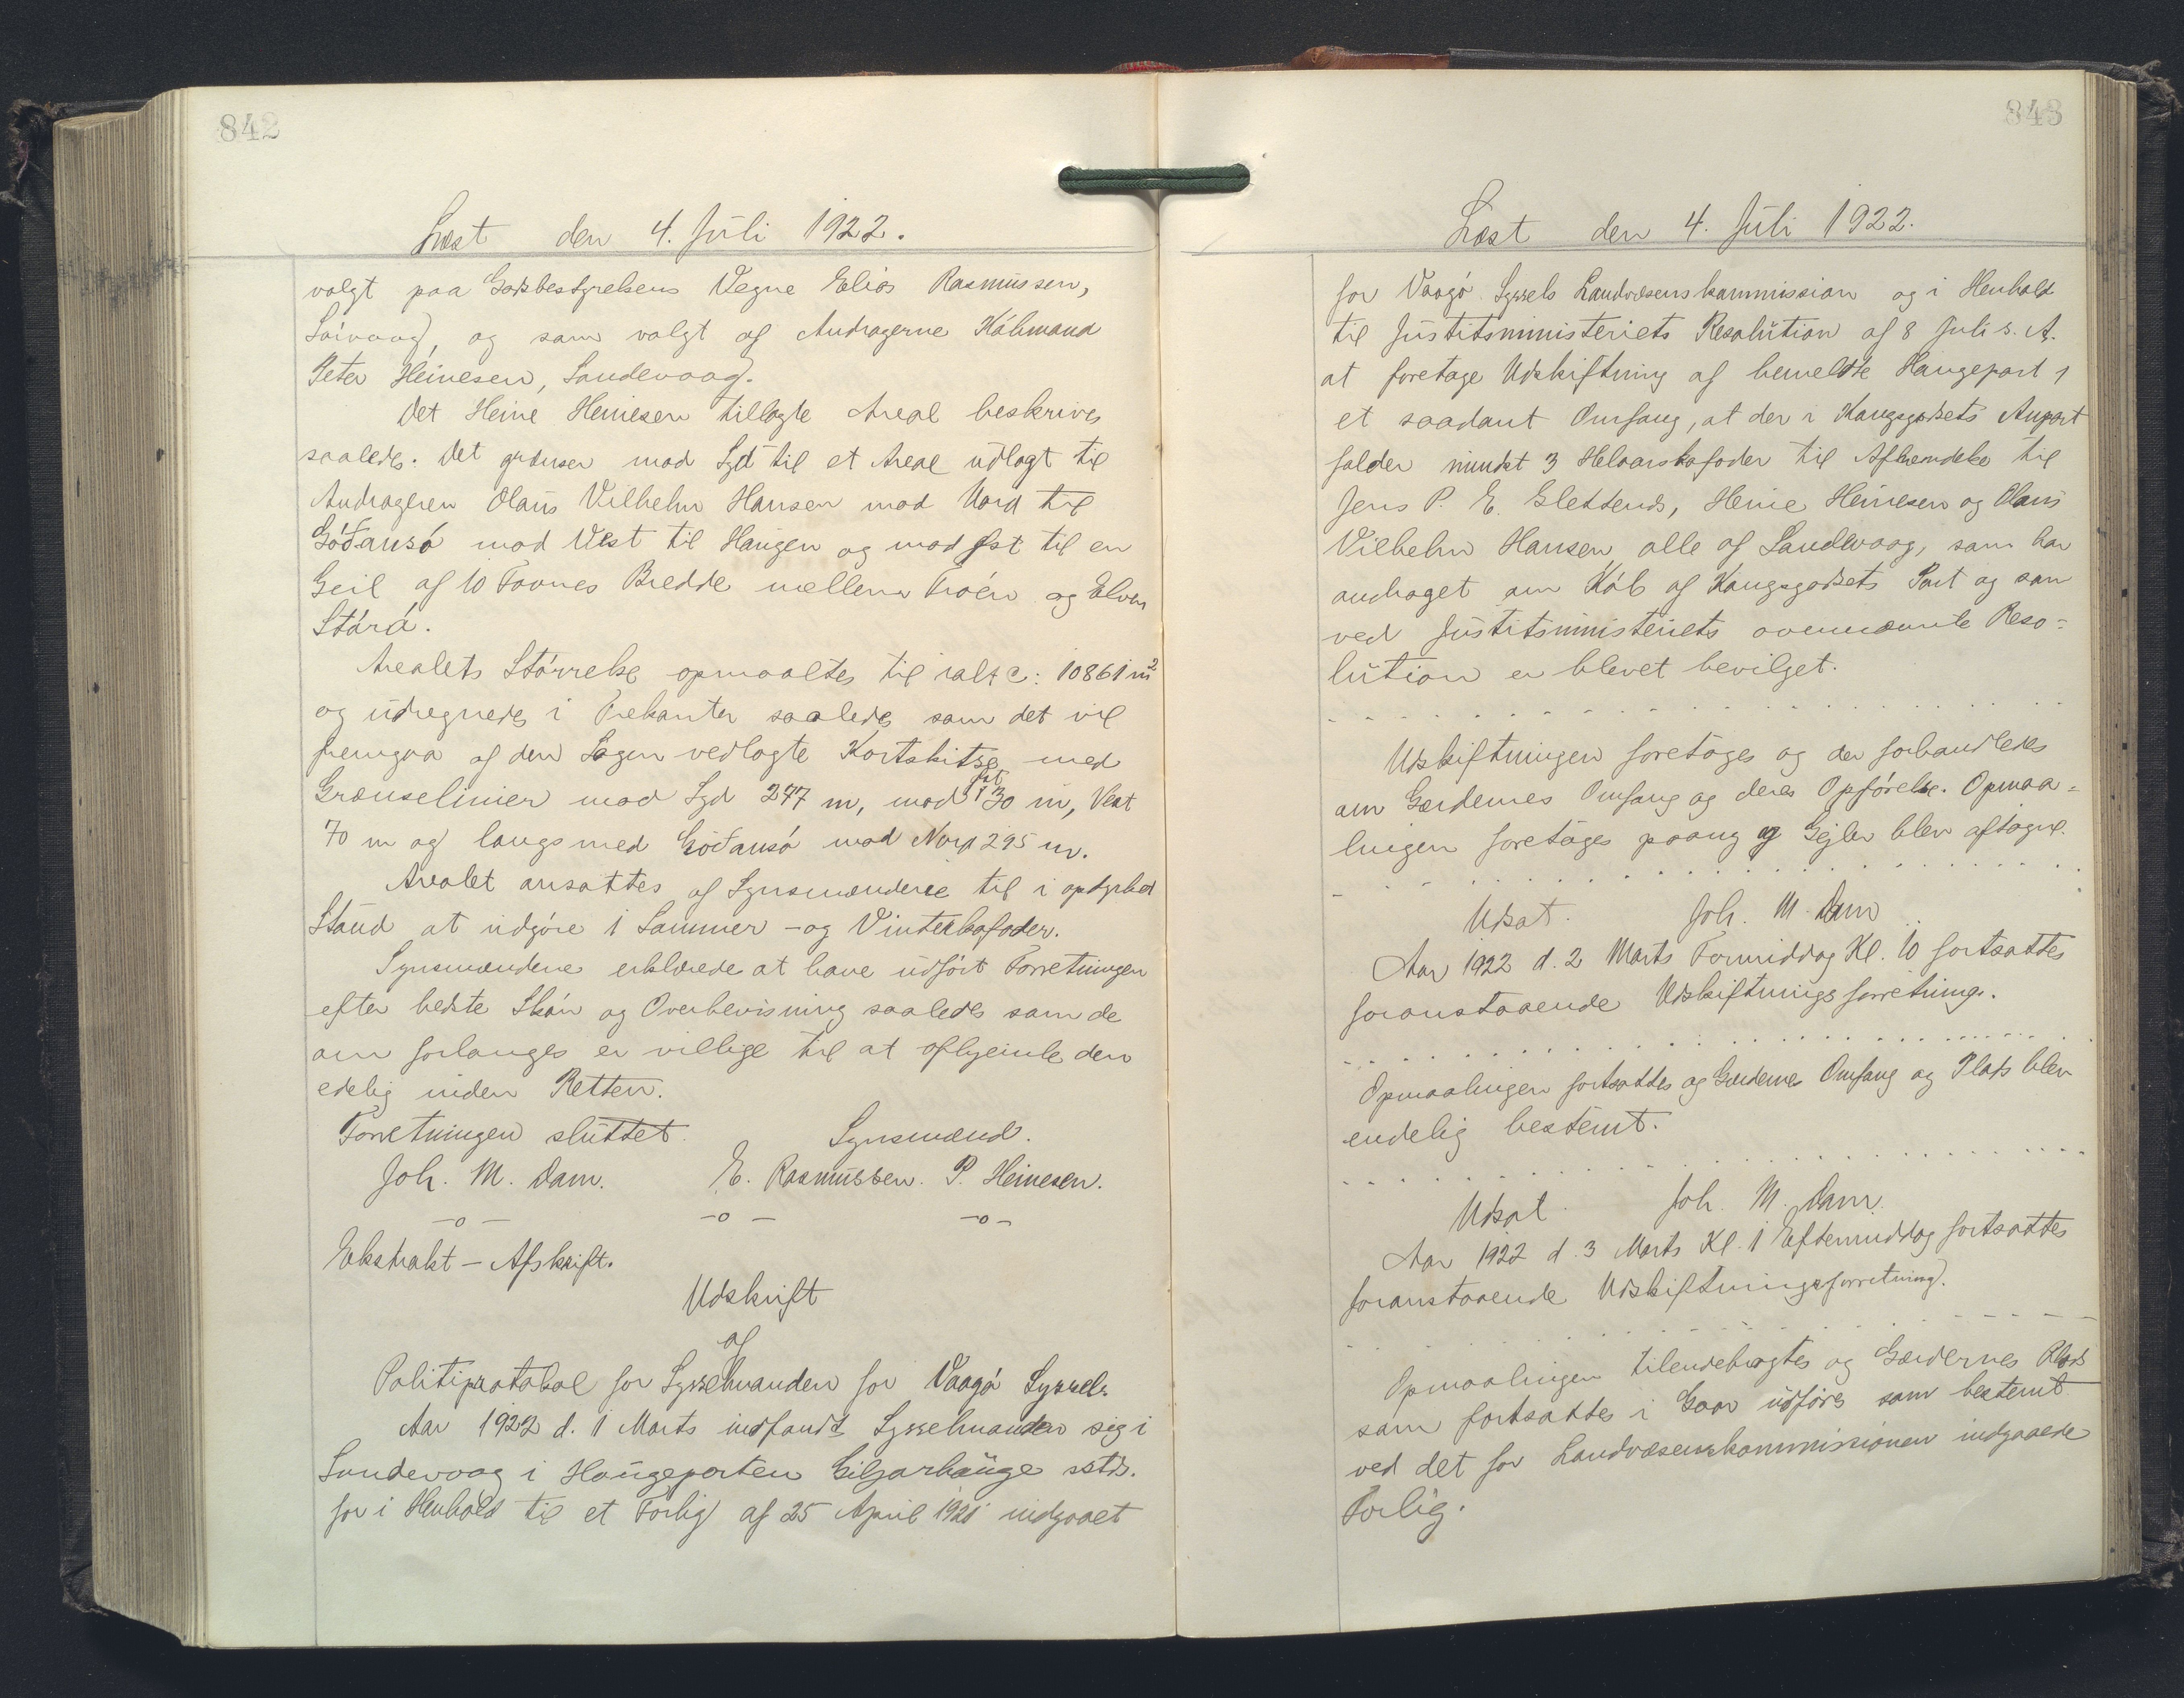 842
Læst den 4. Juli 1922.
valgt paa Godsbestyrelsens Vegne Elias Rasmussen,
Sörvaag, og som valgt af Andragerne Kóbmand
Peter Heinesen, Sandevaag.
Det Heine Heinesen tillagte Areal beskrives
saaledes: Det grænser mod Syd til et Areal udlagt til
Andrageren Olaus Vilhelm Hansen mod Nord til
Góðansó mod Vest til Haugen og mod Øst til en
Geil af 10 Favnes Bredde mellem Tróen og Elven
Stórá.
Arealets Störrelse opmaaltes til ialt c: 10861 m²
og udregnedes i Trekanter saaledes som det vil
fremgaa af den Sagen vedlagte Kortskitse med
Grænselinier mod Syd 247 m, mod Øst 130 m, Vest
70 m og langs med Góðansó mod Nord 295 m.
Arealet ansattes af Synsmændene til i opdyrket
Stand at udgóre 1 Sommer- og Vinterkofoder.
Synsmændene erklærede at have udfórt Forretningen
efter bedste Skón og Overbevisning saaledes som de
om forlanges er villige til at afhjemle den
edelig inden Retten.
Forretningen sluttet. Synsmænd.
Joh. M. Dam. E. Rasmussen. P. Heinesen.
-o- -o- -o-
Ekstrakt-Afskrift.
Udskrift
af
Politiprotokol for Sysselmanden for Vaagó Syssel.
Aar 1922 d. 1 Marts indfandt Sysselmanden sig i
Sandevaag i Haugeparten Giljarhauge sstds.
for i Henhold til et Forlig af 25 April 1921 indgaaet
843
Læst den 4. Juli 1922.
for Vaagó Syssels Landvæsenskommission og i Henhold
til Justitsministeriets Resolution af 8 Juli s. A.
at foretage Udskiftning af bemeldte Haugepart i
et saadant Omfang, at der i Kongsgodsets Anpart
falder mindst 3 Helaarskofoder til Afhændelse til
Jens P. E. Slettenes, Heine Heinesen og Olaus
Vilhelm Hansen alle af Sandevaag, som har
andraget om Kób af Kongsgodsets Part og som
ved Justitsministeriets ovennævnte Reso-
lution er blevet bevilget.
Udskiftningen foretoges og der forhandledes
om Gærdernes Omfang og deres Opfórelse. Opmaa-
lingen foretoges paany og Gejler blev aftagne.
Udsat. Joh. M. Dam
Aar 1922 d. 2 Marts Formiddag Kl. 10 fortsattes
foranstaaende Udskiftningsforretning.
Opmaalingen fortsattes og Gærdernes Omfang og Plads blev
endelig bestemt.
Udsat. Joh. M. Dam.
Aar 1922 d. 3 Marts Kl. 1 Eftermiddag fortsattes
foranstaaende Udskiftningsforretning.
Opmaalingen tilendebragtes og Gærdernes Plads
som fortsattes i Gaar udföres som bestemt
ved det for Landvæsenskommissionen indgaaede
Forlig.